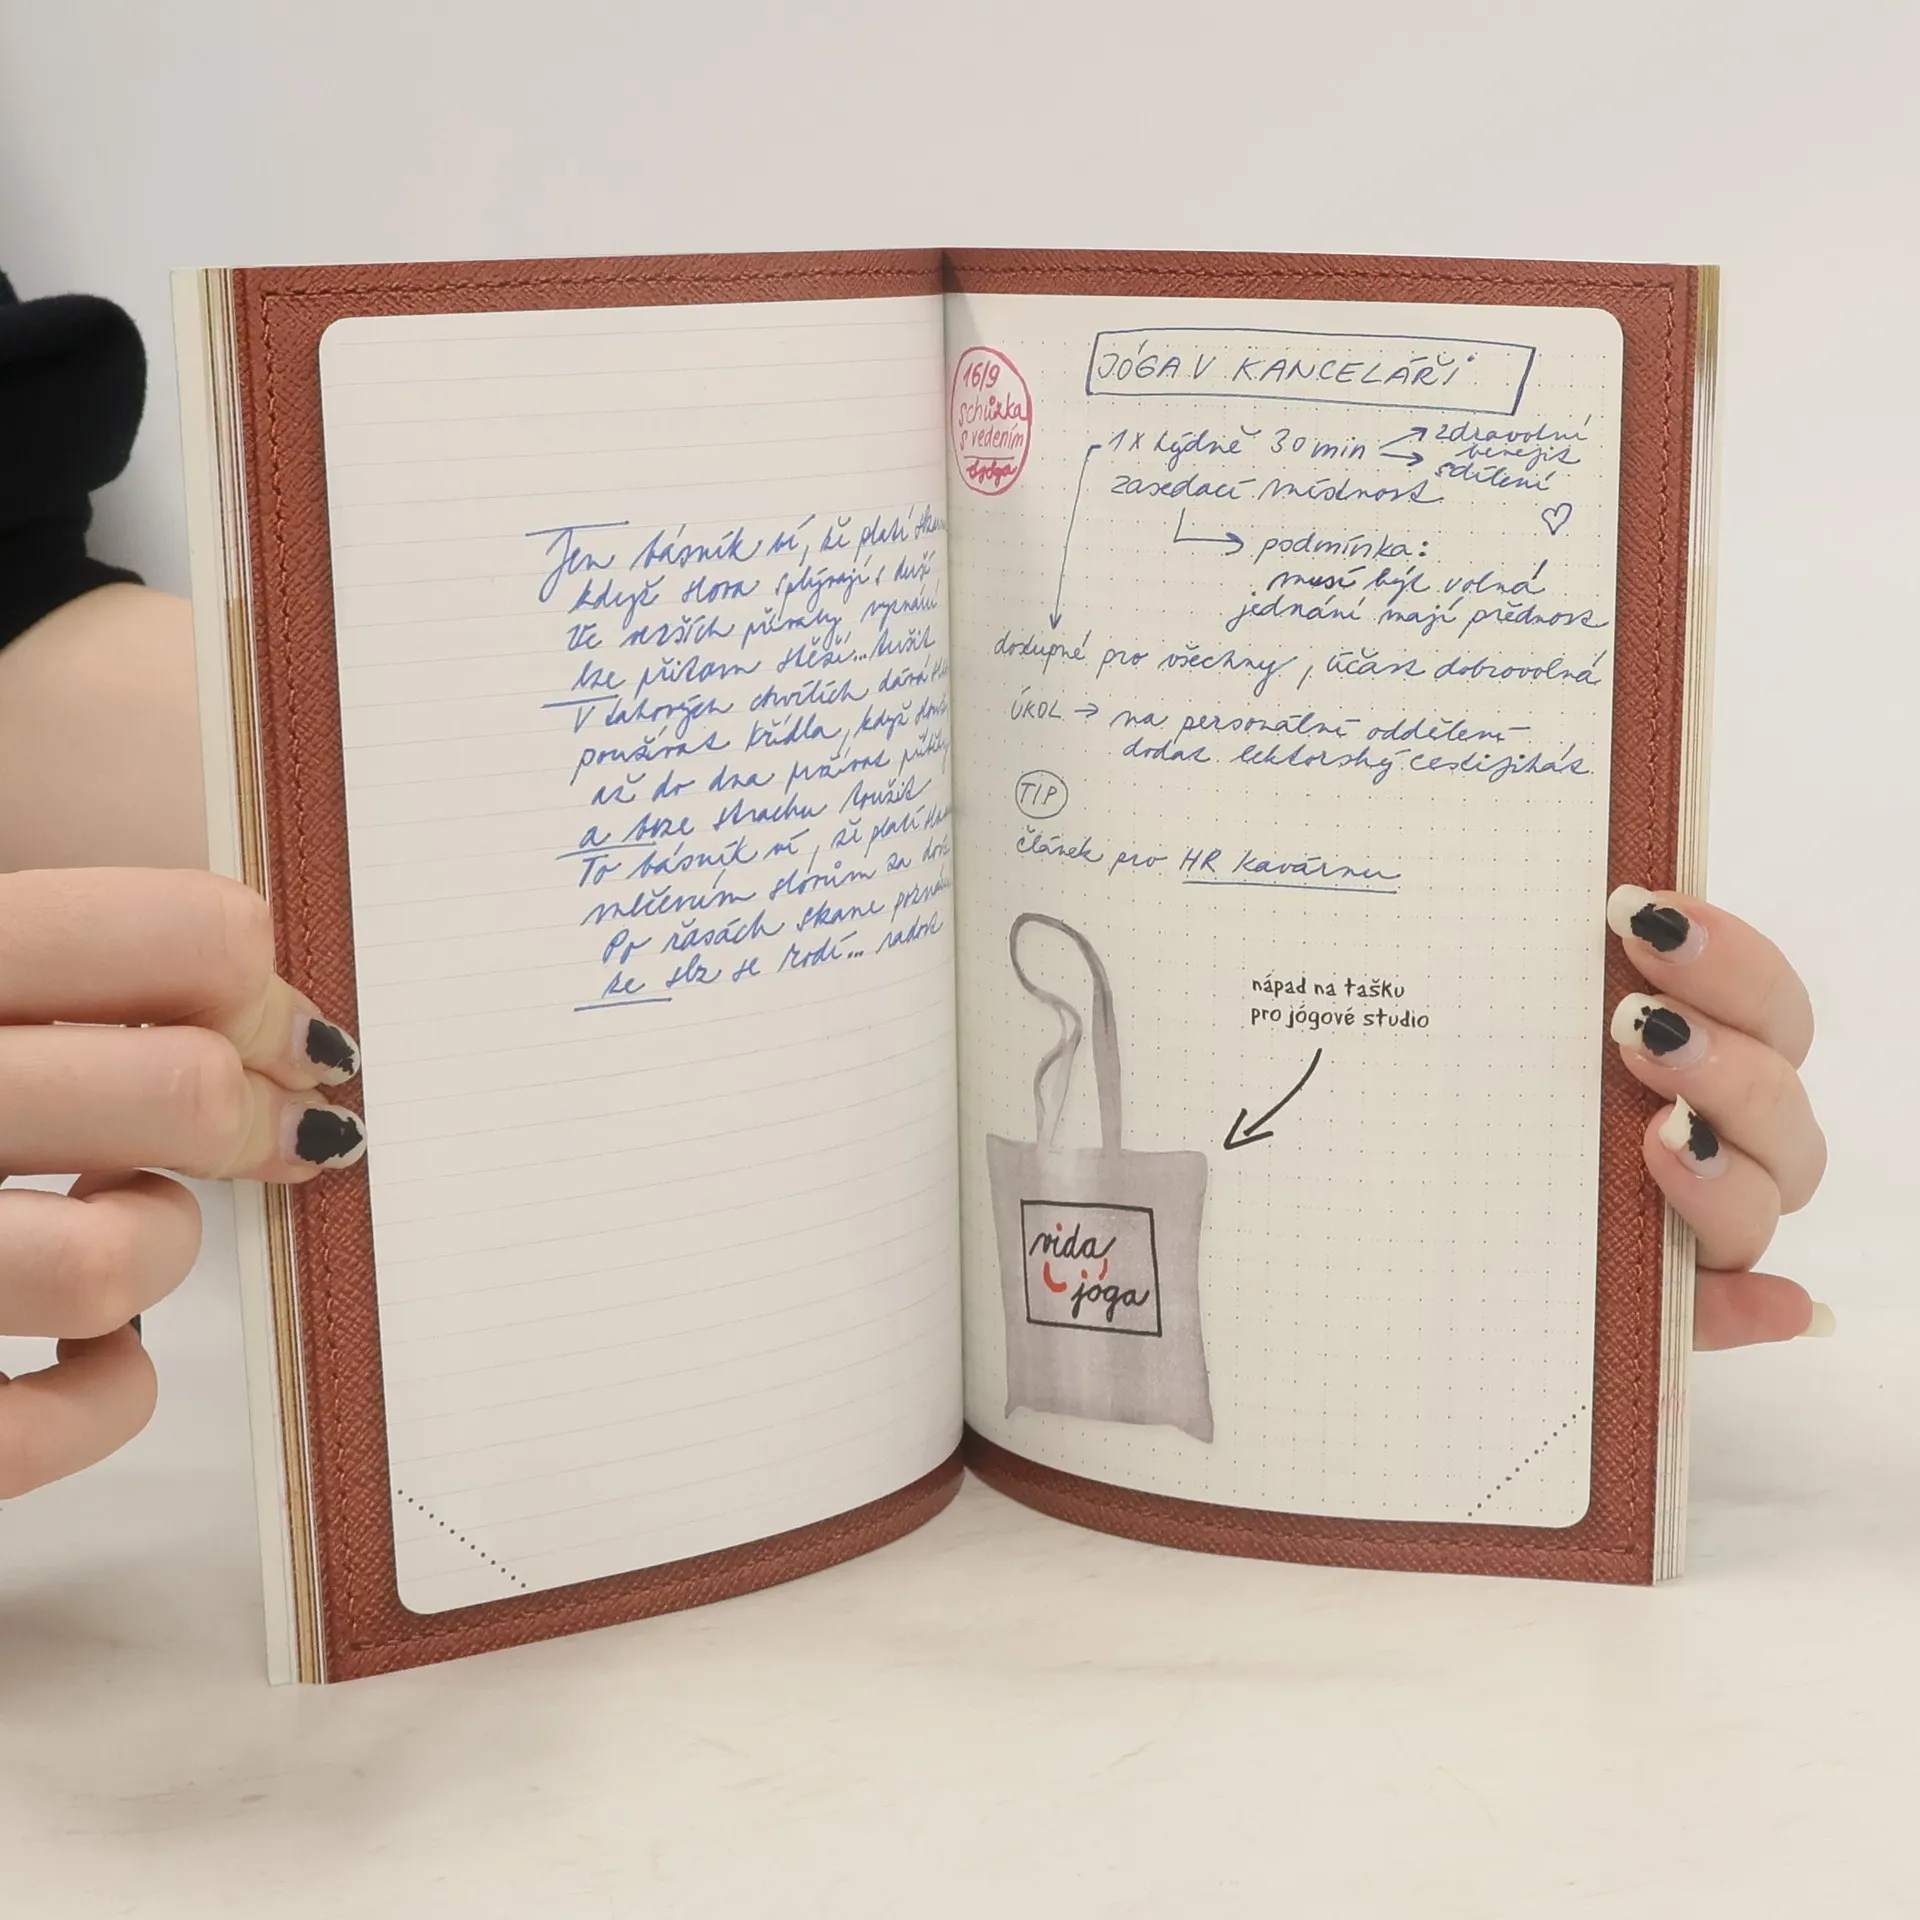 Jen básník ví, že platí
když slova splývají s duší
Ve verších přívaly vyznání
lze přitom stěží... tušit
V takových chvílích dává
používat křídla, když
až do dna prožívat příběhy
a beze strachu toužit
To básník ví, že platí
mlčením slovům za
Po řasách skane
ze slz se rodí... radost
16/9
Schůzka
s vedením
Jóga
JÓGA V KANCELÁŘI
1x týdně 30 min
zdravotní
benefit
sdílení
zasedací místnost
podmínka:
musí být volná
jednání mají přednost
dostupné pro všechny, účast dobrovolná
ÚKOL → na personální oddělení
dodat lektorský certifikát
TIP
článek pro HR kavárnu
nápad na tašku
pro jógové studio
vida
jóga